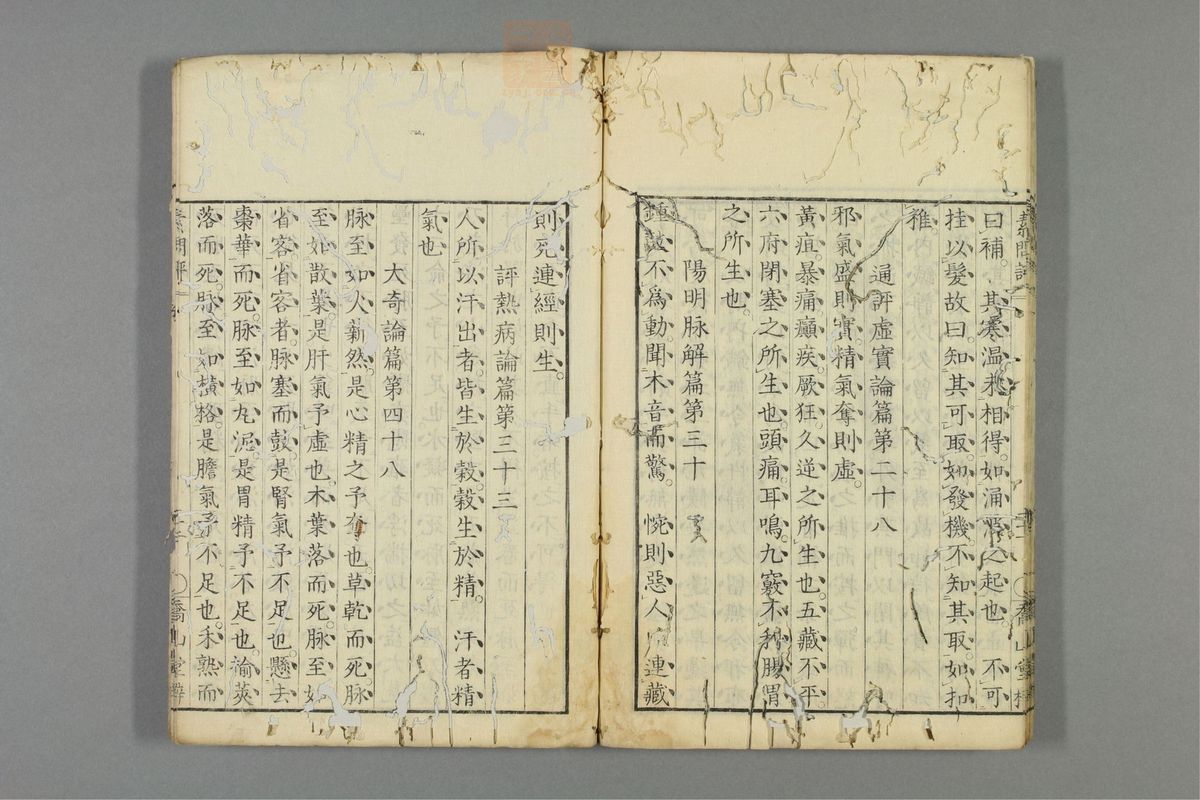 曰補。其寒温未相得。如涌波之起也。不可
挂以髮故曰。知其可取如發機。不知其取。如扣
椎。
通評虛實論篇第二十八
邪氣盛則實。精氣奪則虛。
黃疸。暴痛癲疾。厥狂久逆之所生也。五藏不平。
六府閉塞之所生也。頭痛。耳鳴。九竅不利。腸胃
之所生也。
陽明脉解篇第三十
鍾鼓不爲動。聞木音而驚。惋則惡人。連藏
則死。連經則生。
評熱病論篇第三十三
人所以汗出者。皆生於榖。榖生於精。汗者精
氣也
大奇論篇第四十八
脉至如火薪然。是心精之予奪也。草乾而死。脉
至如散葉。是肝氣予虛也。木葉落而死。脉至如
省客。省客者。脉塞而鼓。是腎氣予不足也。懸去
棗華而死。脉至如丸泥。是胃精予不足也。楡莢
落而死。脉至如橫格。是膽氣予不足也。禾熟而
素問評
喬山堂